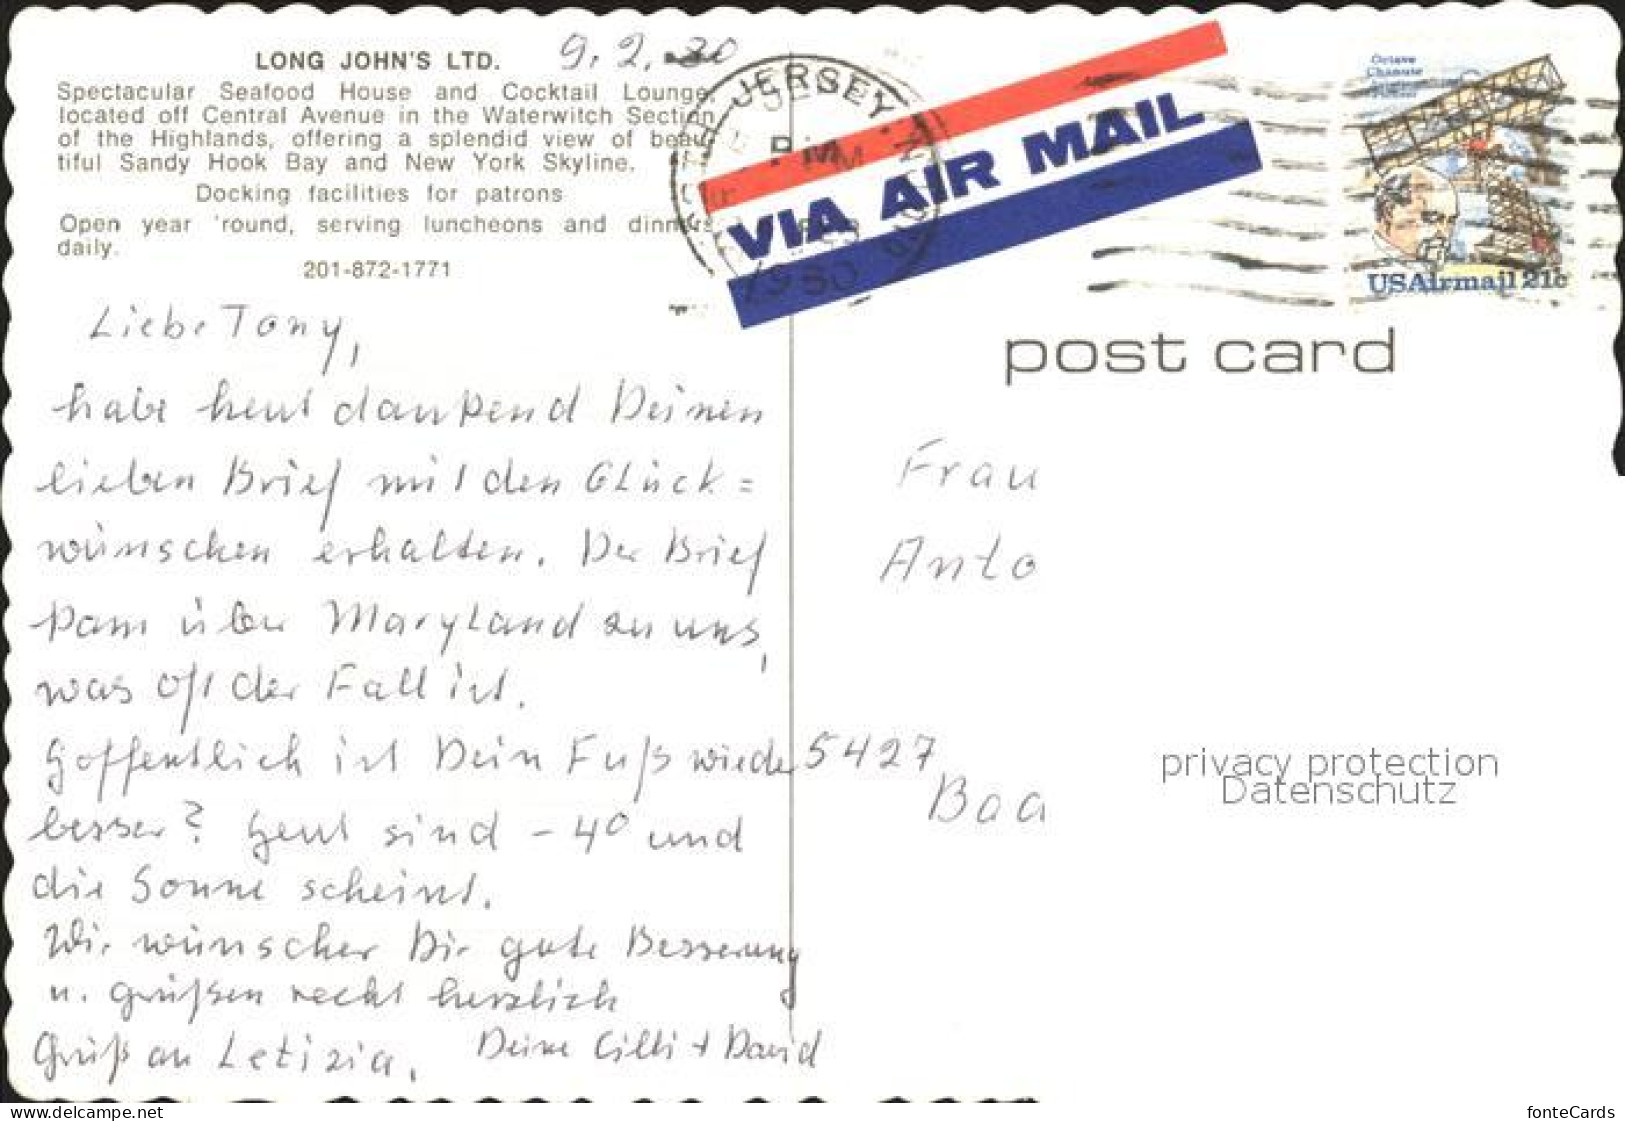 LONG JOHN'S LTD.
9.2.
Spectacular Seafood House and Cocktail Lounge,
located off Central Avenue in the Waterwitch Section
of the Highlands, offering a splendid view of beau
tiful Sandy Hook Bay and New York Skyline.
Docking facilities for patrons
Open year 'round, serving luncheons and dinners
daily.
201-872-1771
Liebe Tony,
habe heut dankend Deinen
lieben Brief mit den Glück=
wünschen erhalten. Der Brief
kam über Maryland zu uns,
was oft der Fall ist.
Hoffentlich ist Dein Fuß wieder
besser? Heut sind -4° und
die Sonne scheint.
Wir wünschen Dir gute Besserung
u. grüßen recht herzlich
Gruß an Letizia. Deine Cilli + David
JERSEY
PM
1980
VIA AIR MAIL
Octave
Chanute
USAirmail 21c
post card
Frau
Anto
5427
Baa
privacy protection
Datenschutz
www.delcampe.net
fonteCards